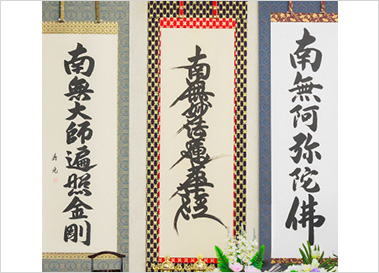 南無大師遍照金剛
南無妙法蓮華経
南無阿弥陀佛